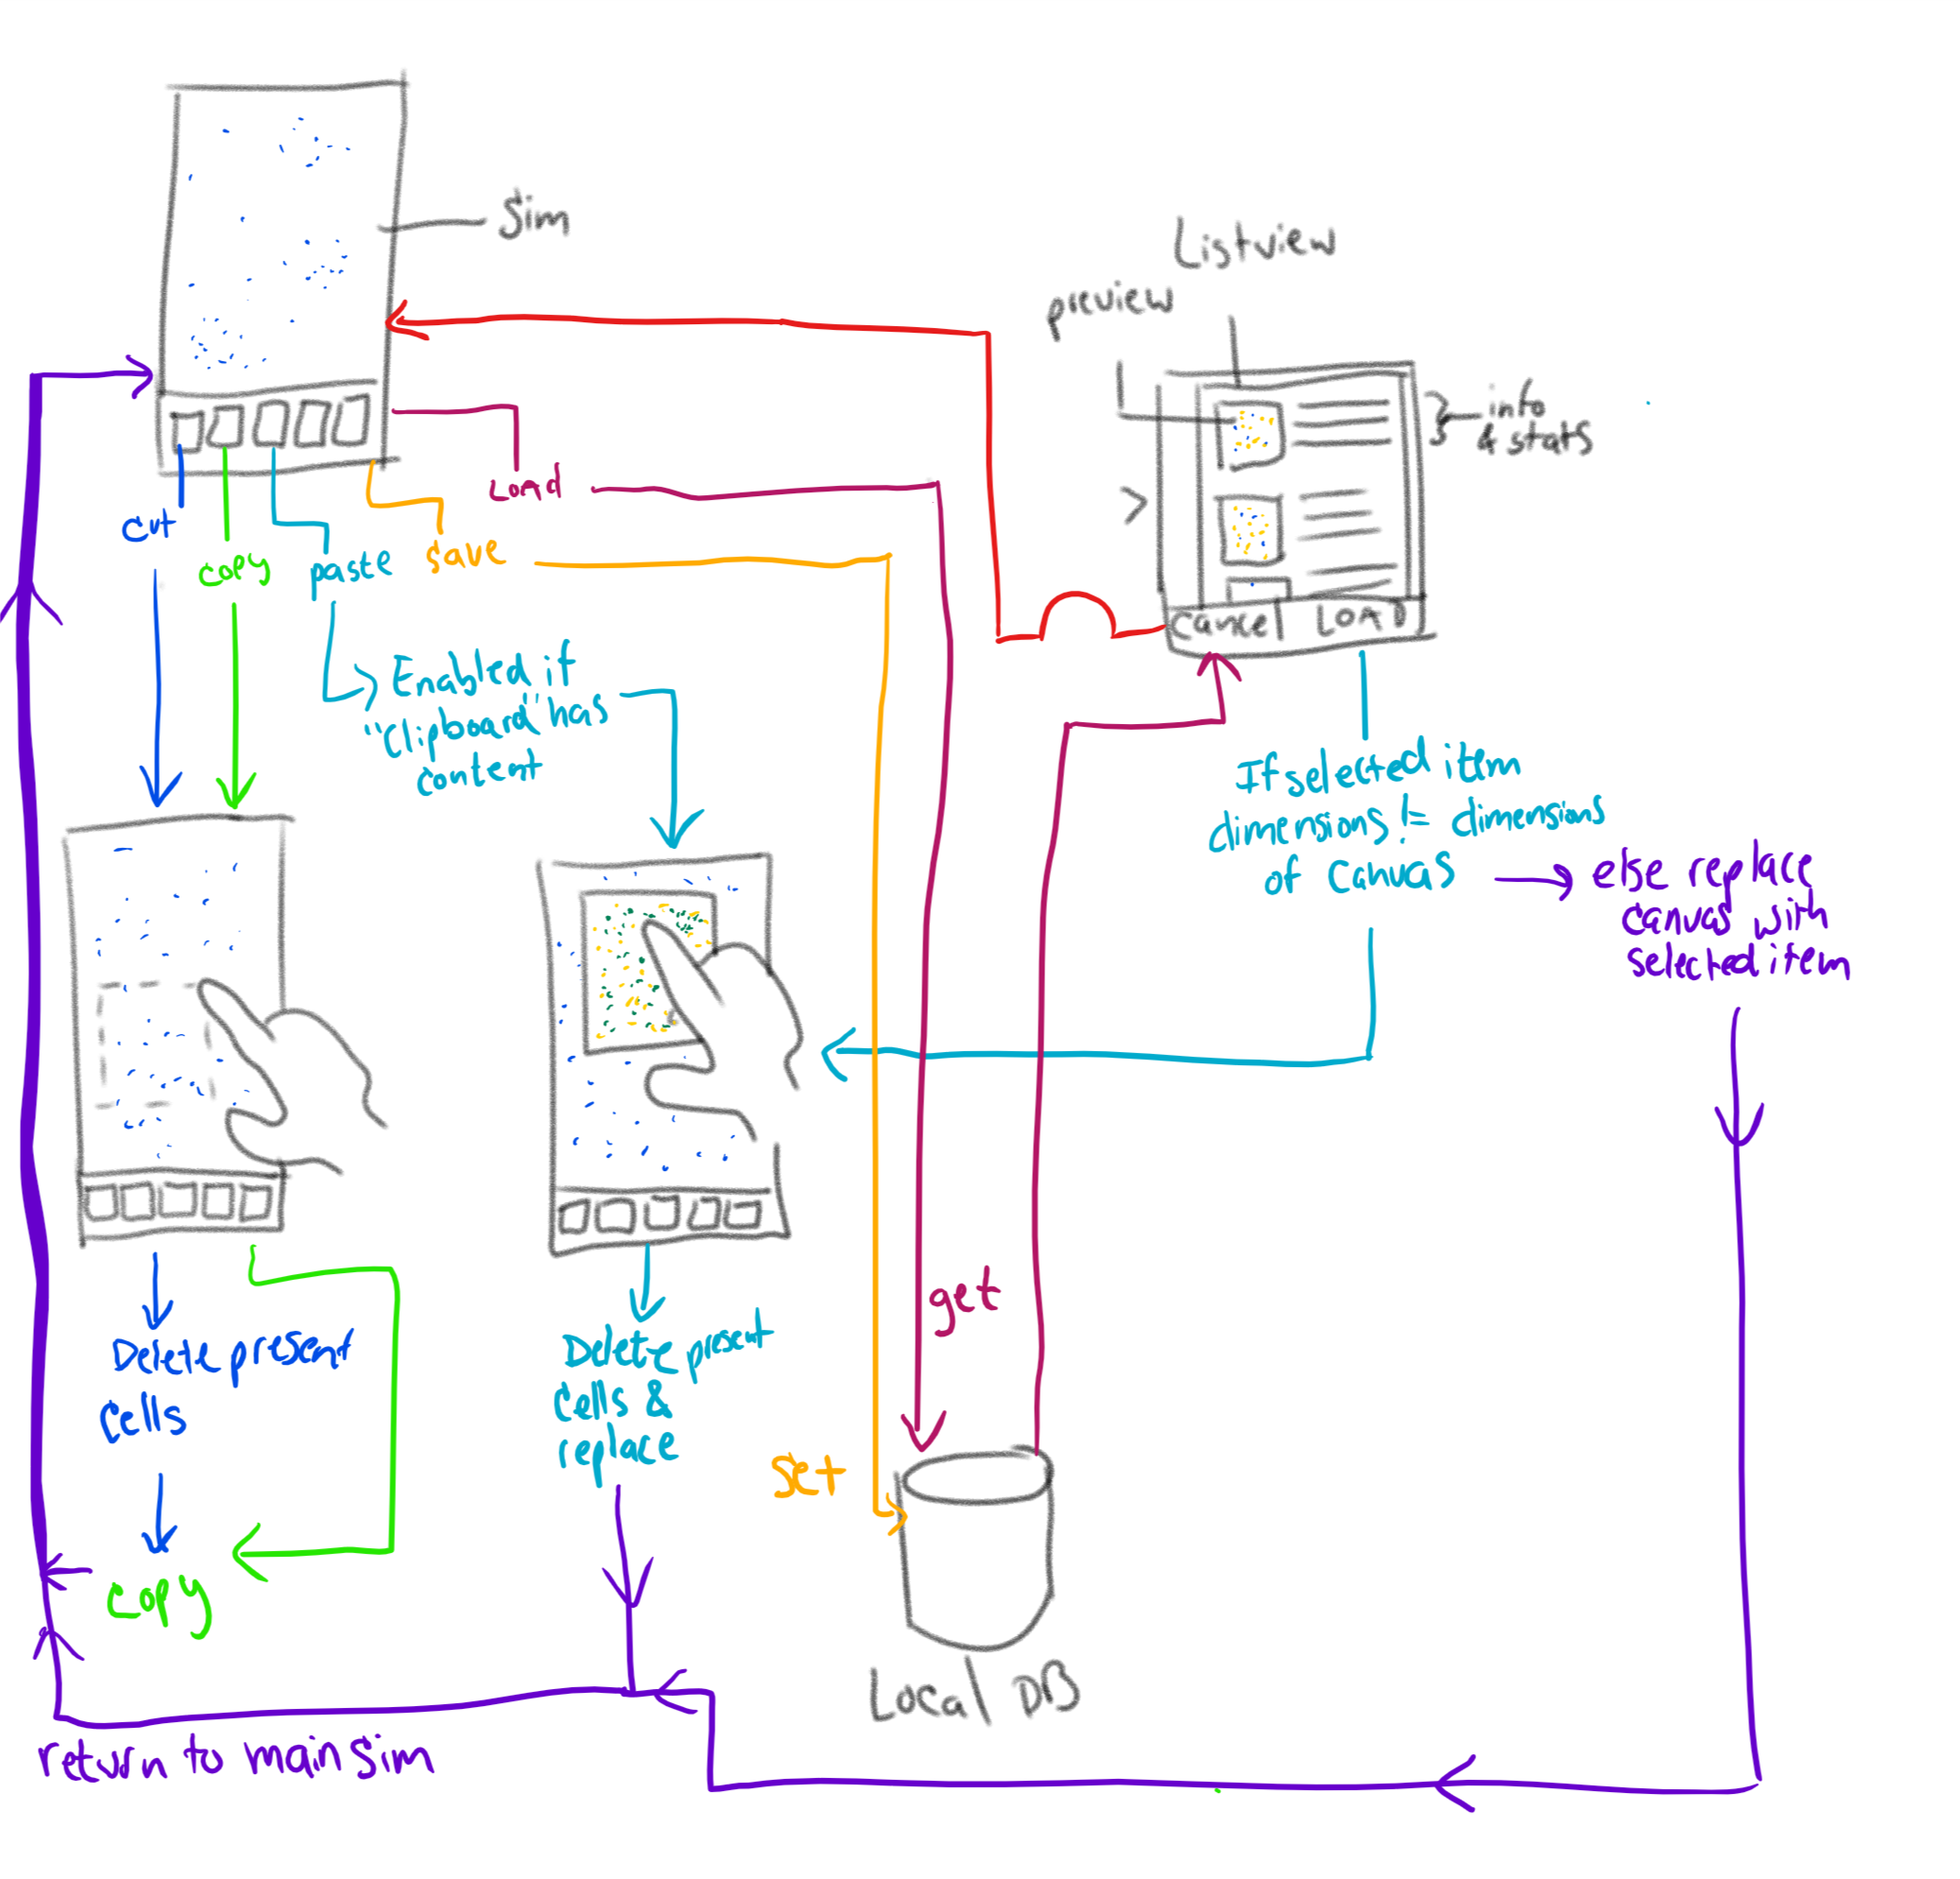 Sim
Listview
preview
info
& stats
cut
copy
paste
save
LOAD
Cancel LOAD
Enabled if
"Clipboard" has
content
If selected item
dimensions != dimensions
of canvas
else replace
canvas with
selected item
get
Delete present
cells
Delete present
cells &
replace
set
copy
Local DB
return to main sim